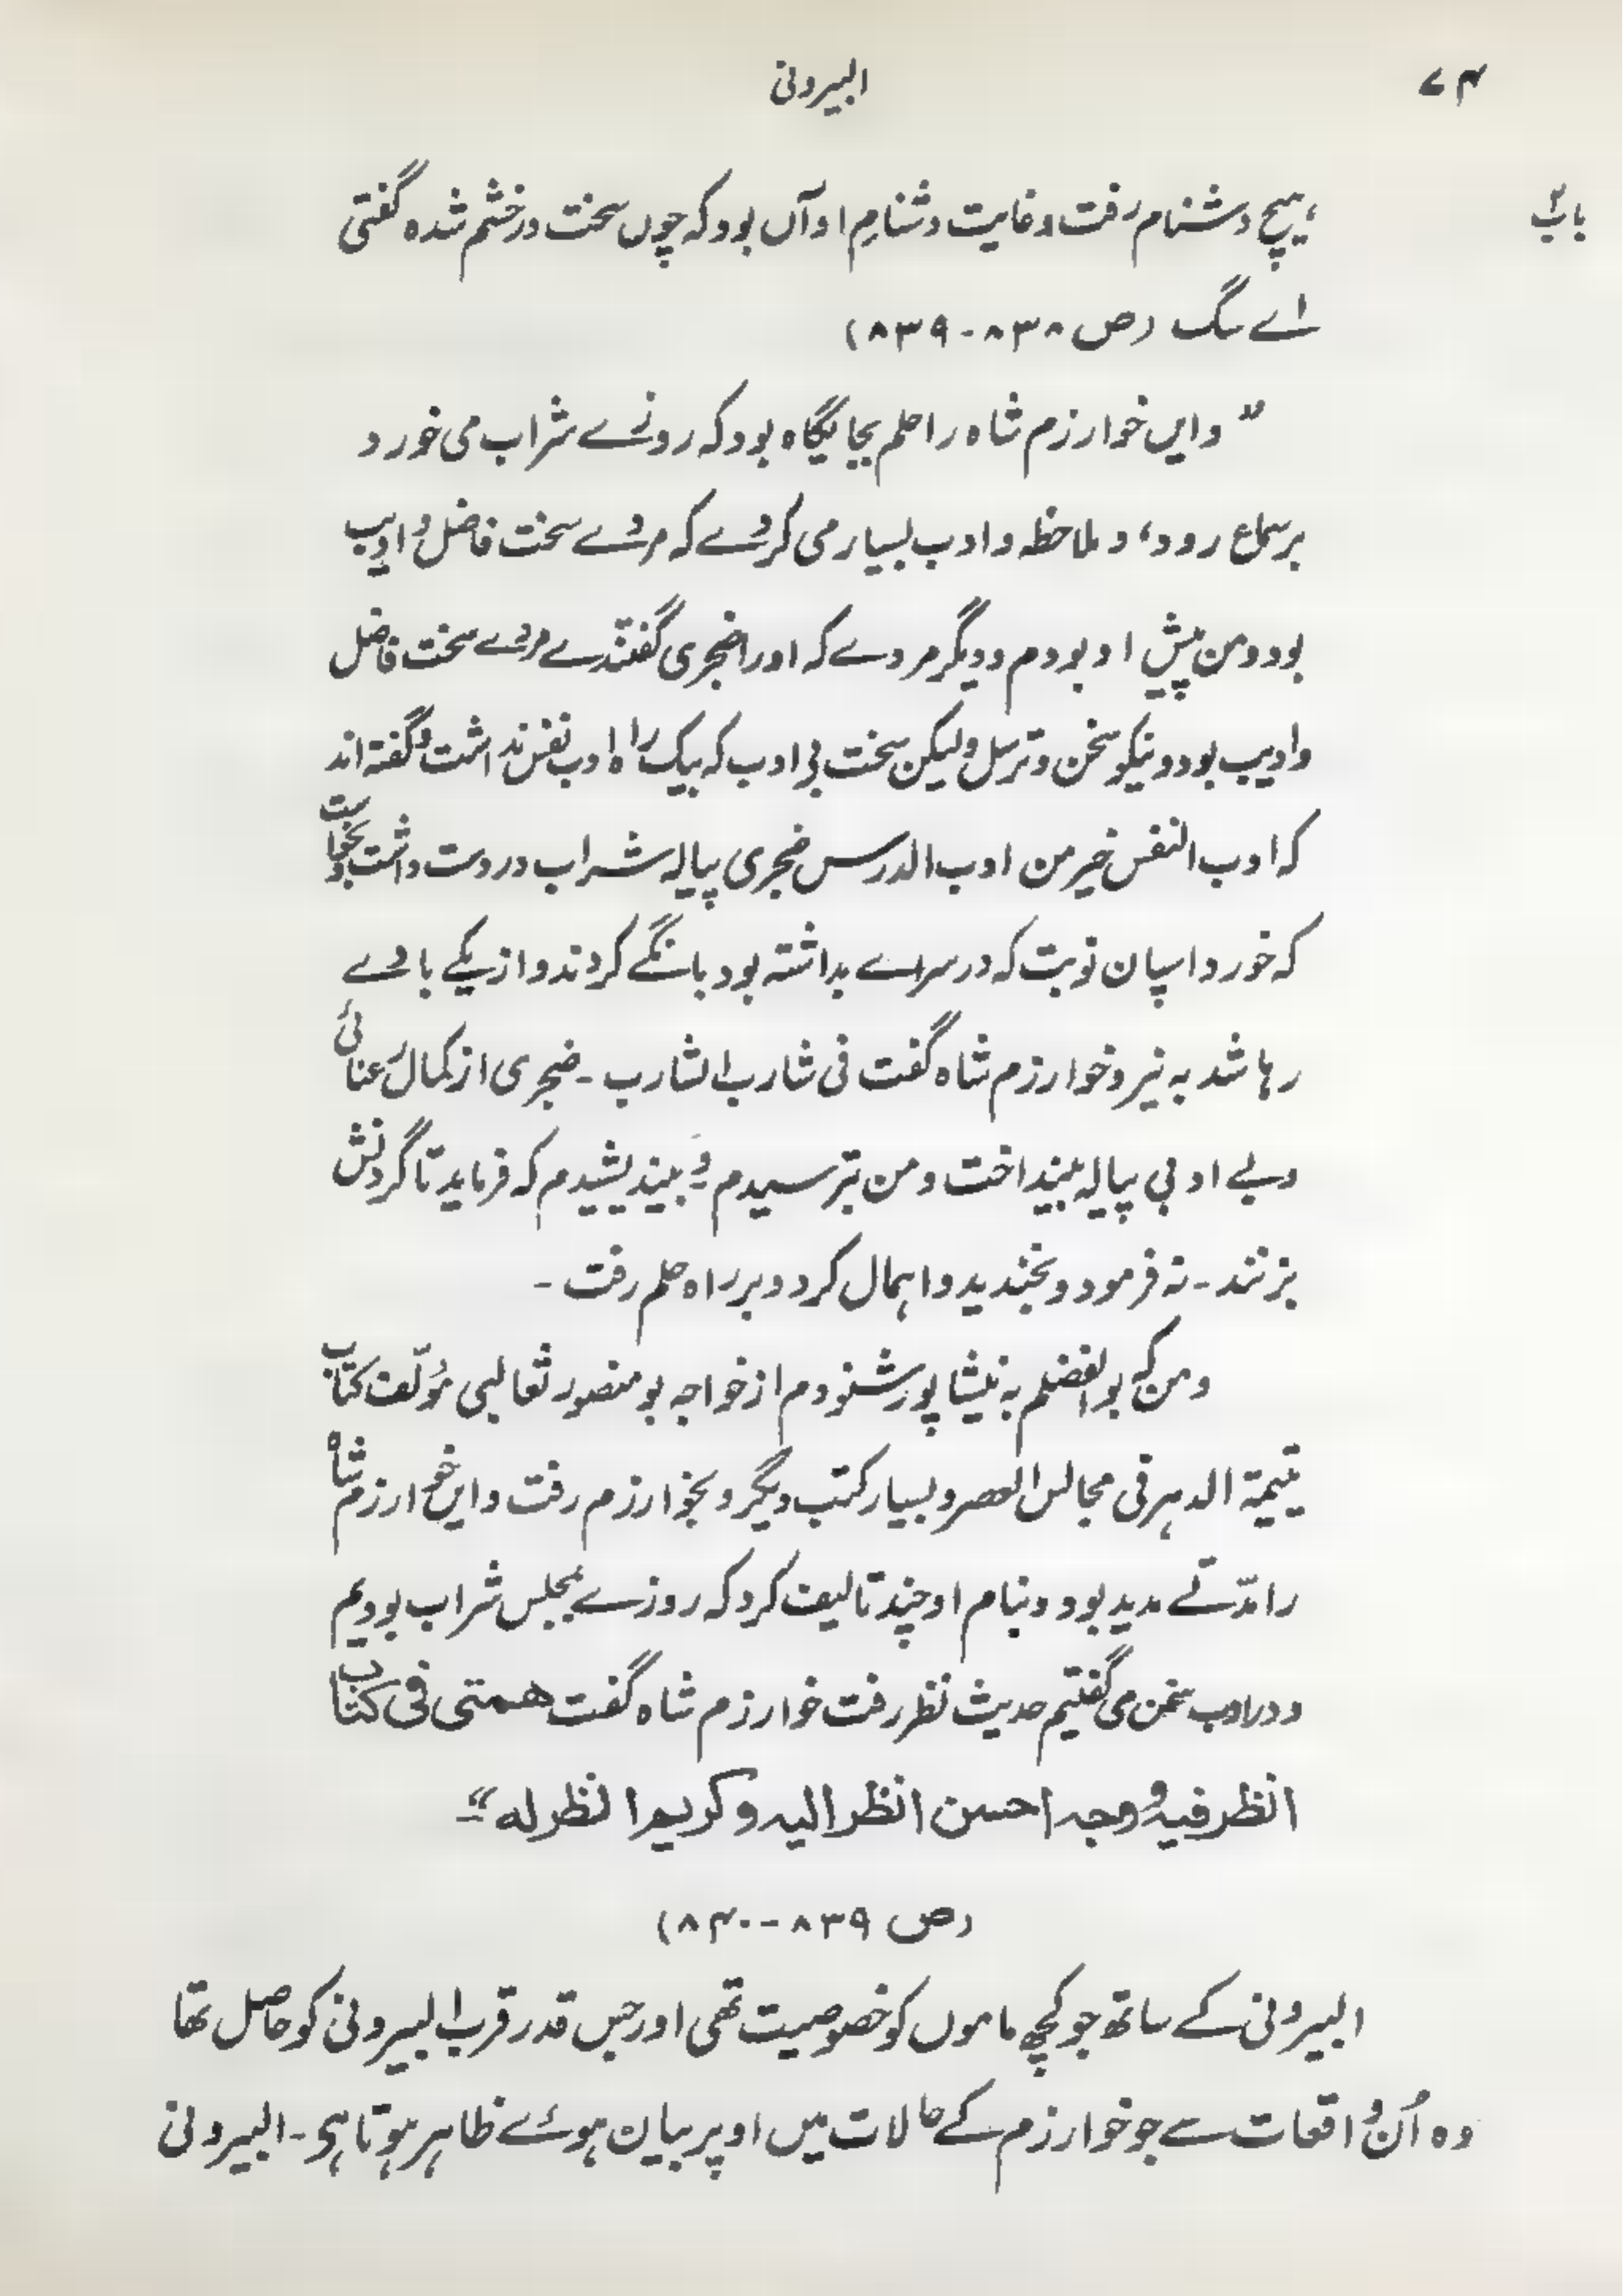 ۷۴
البیرونی
باب
ہیچ دشنام رفت و غایت دشنامِ او آں بود کہ چوں سخت در خشم شدہ گفتی
اے سگ (ص ۸۳۸-۸۳۹)
"و ایں خوارزم شاہ را حلم بجایگاہ بود کہ روزے شراب می خورد
بر سماع رود، و ملاحظہ و ادب بسیار می کردے کہ مردے سخت فاضل و ادیب
بود و من پیش او بودم و دیگر مردے کہ او را ضجری گفتندے مردے سخت فاضل
و ادیب بود و نیکو سخن و ترسل و لیکن سخت بی ادب کہ بیک راہ ادب نفس نداشت و گفتہ اند
کہ ادب النفس خیر من ادب الدرس ضجری پیالہ شراب در دست داشت و بخواست
کہ خورد اسپان نوبت کہ در سرے بداشتہ بود بانگے کردند و از یکے بادے
رہا شد بہ نیرو خوارزم شاہ گفت فی شارب الشارب ۔ ضجری از کمال رعنائی
و بے ادبی پیالہ بینداخت و من بترسیدم و بیندیشیدم کہ فرماید تا گردنش
بزنند ۔ نہ فرمود و بخندید و اہمال کرد و بر راہ حلم رفت ۔
و من کہ بوالفضلم بہ نیشاپور شنودم از خواجہ بو منصور ثعالبی مؤلّف کتاب
یتیمۃ الدہر فی مجالس العصر و بسیار کتب دیگر و بخوارزم رفت و ایں خوارزم شاہ
را مدّتے مدید بود و بنام او چند تالیف کرد کہ روزے بمجلس شراب بودیم
و در ادب سخن می گفتیم حدیث نظر رفت خوارزم شاہ گفت ھمتی فی کتاب
انظر فیہ و وجہ احسن انظر الیہ و کریم انظر لہ"۔
(ص ۸۳۹-۸۴۰)
البیرونی کے ساتھ جو کچھ ماموں کو خصوصیت تھی اور جس قدر قرب البیرونی کو حاصل تھا
وہ اُن واقعات سے جو خوارزم کے حالات میں اوپر بیان ہوئے ظاہر ہوتا ہی ۔ البیرونی